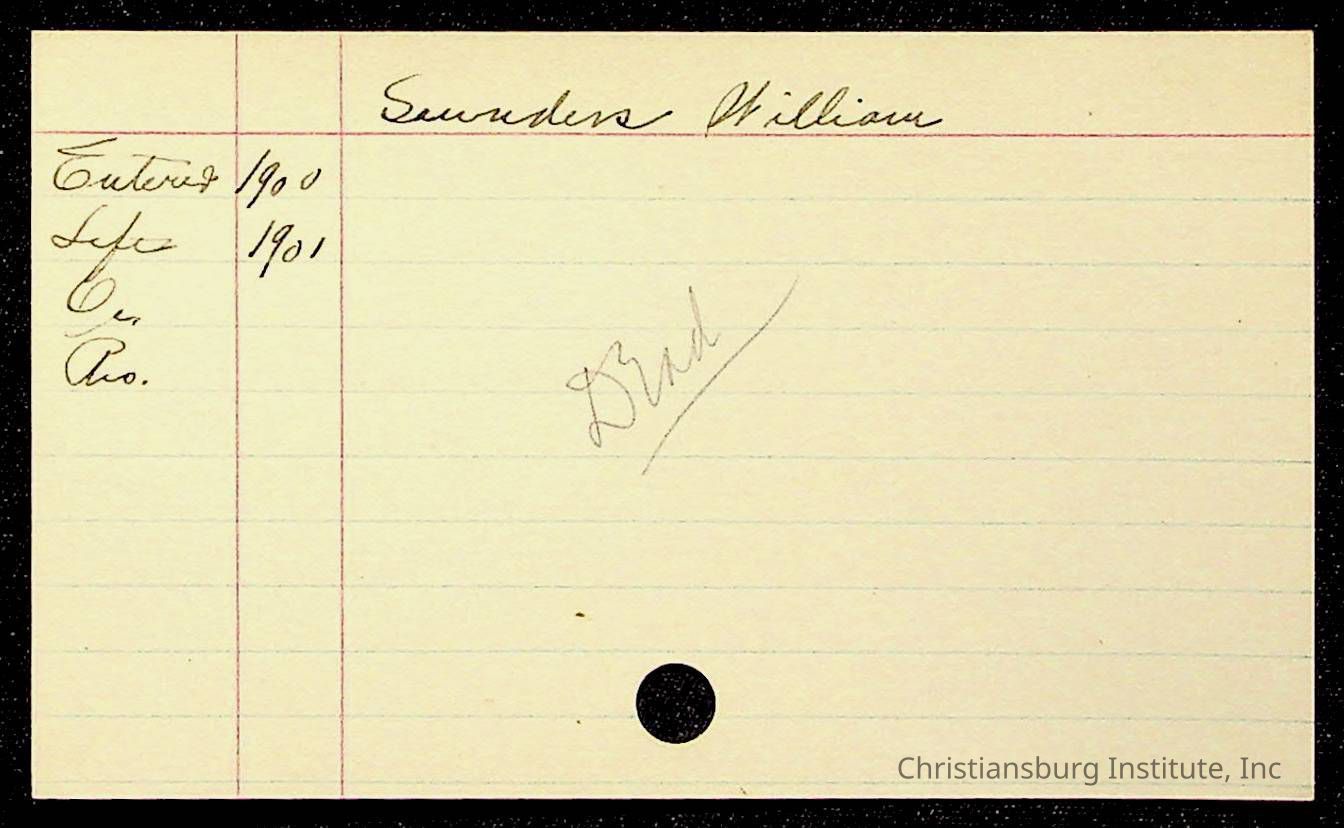 Saunders William
Entered 1900
Left 1901
Dead
Christiansburg Institute, Inc